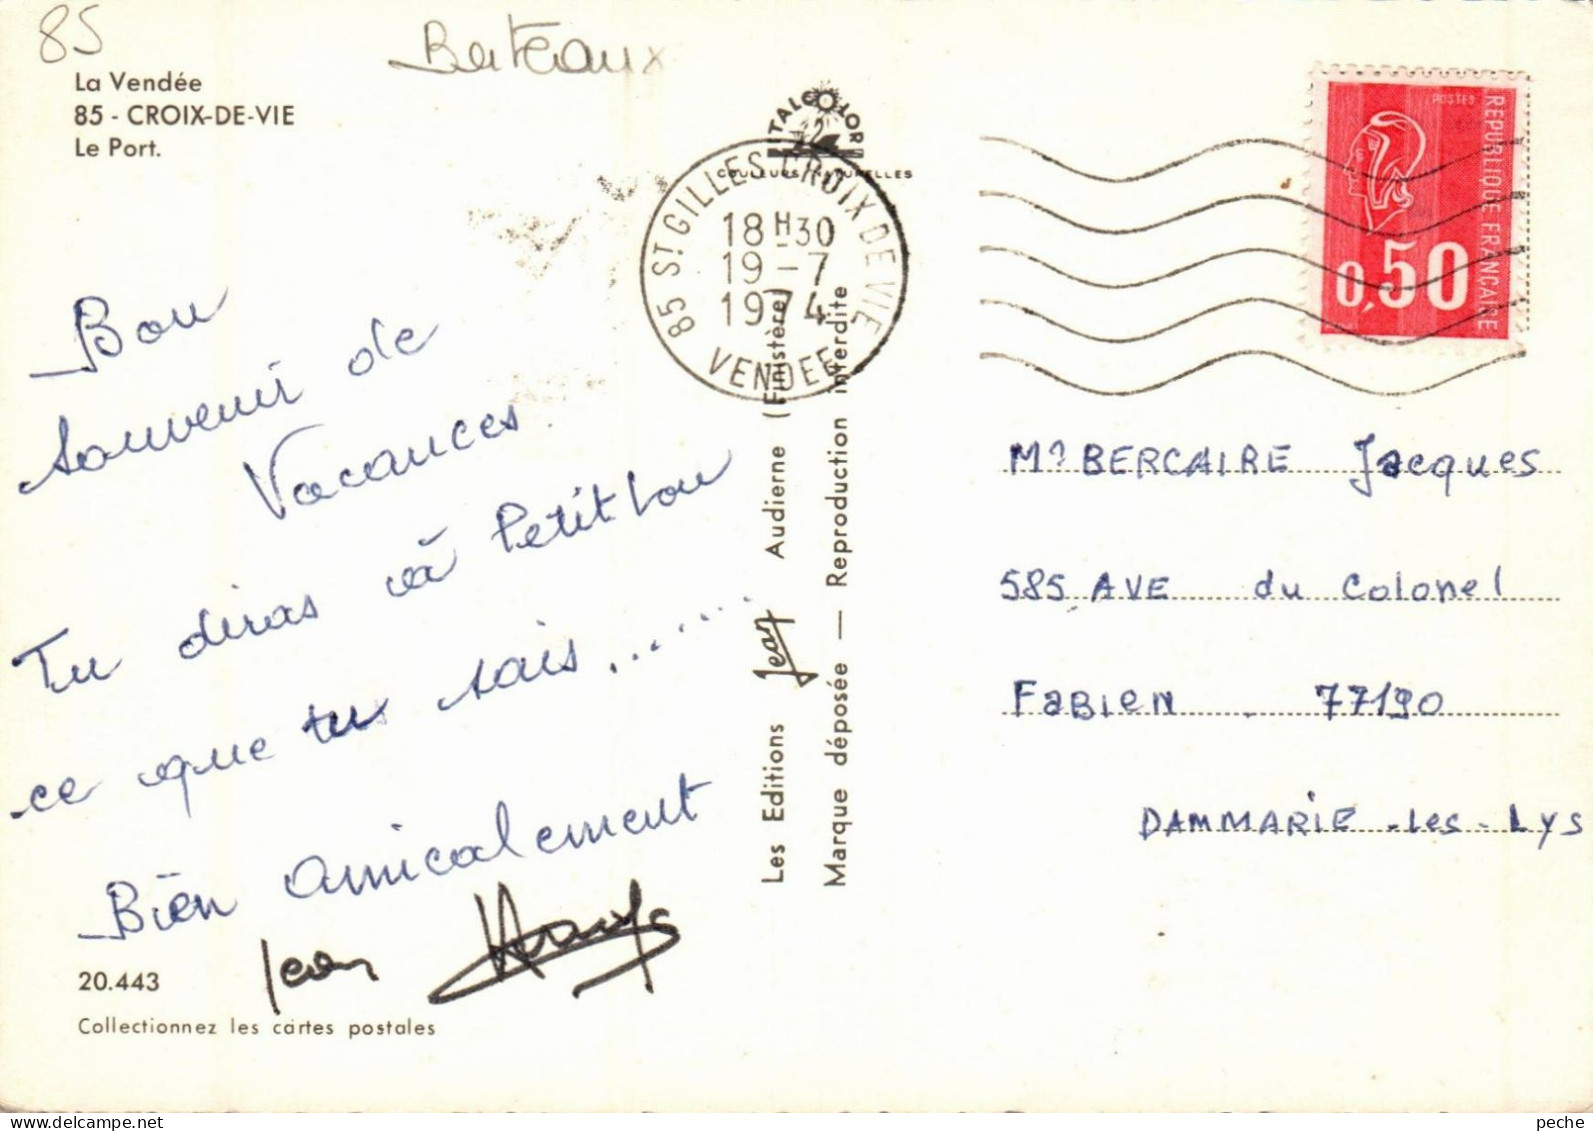 85
Berteaux
La Vendée
85 - CROIX-DE-VIE
Le Port.
ITALCOLOR
COULEURS NATURELLES
85 ST GILLES CROIX DE VIE
18 H 30
19 - 7
1974
VENDEE
POSTES
REPUBLIQUE FRANÇAISE
0,50
Bon
souvenir de
Vacances.
Tu diras à Petit Lou
ce que tu sais...........
Bien amicalement
Jean
20.443
Collectionnez les cartes postales
Les Editions Jean Audierne (Finistère)
Marque déposée — Reproduction interdite
Mr BERCAIRE Jacques
585 AVE du Colonel
FABIEN . 77190
DAMMARIE-les-Lys
peche